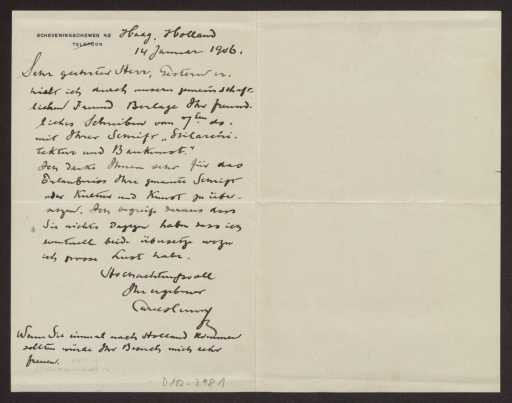 SCHEVENINGSCHEWEG 42
TELEFOON
Haag, Holland
14 Januar 1906.
Sehr geehrter Herr, Gestern er-
hielt ich durch unsern gemeinschaft-
lichen Freund Berlage Ihr freund-
liches Schreiben vom 7ten ds.
mit Ihrer Schrift „Stilarchi-
tektur und Baukunst."
Ich danke Ihnen sehr für das
Erlaubniss Ihre genannte Schrift
oder Kultur und Kunst zu über-
setzen. Ich begreife daraus dass
Sie nichts dagegen haben dass ich
eventuell beide übersetze wozu
ich grosse Lust habe.
Hochachtungsvoll
Ihr ergebener
Wenn Sie einmal nach Holland kommen
sollten würde Ihr Besuch mich sehr
freuen.